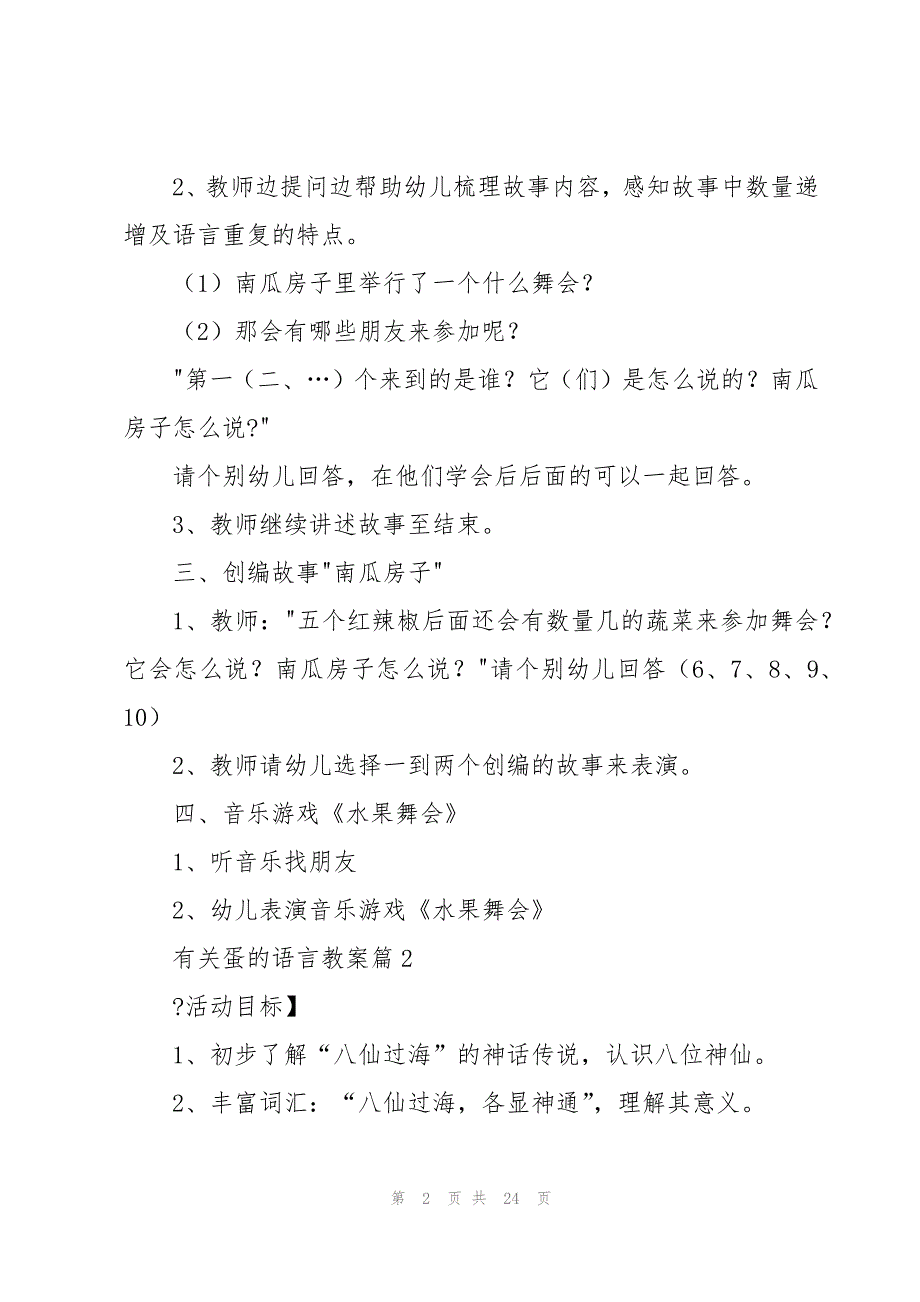 2、教师边提问边帮助幼儿梳理故事内容，感知故事中数量递
增及语言重复的特点。
（1）南瓜房子里举行了一个什么舞会？
（2）那会有哪些朋友来参加呢？
"第一（二、…）个来到的是谁？它（们）是怎么说的？南瓜
房子怎么说?"
请个别幼儿回答，在他们学会后后面的可以一起回答。
3、教师继续讲述故事至结束。
三、创编故事"南瓜房子"
1、教师："五个红辣椒后面还会有数量几的蔬菜来参加舞会？
它会怎么说？南瓜房子怎么说？"请个别幼儿回答（6、7、8、9、
10）
2、教师请幼儿选择一到两个创编的故事来表演。
四、音乐游戏《水果舞会》
1、听音乐找朋友
2、幼儿表演音乐游戏《水果舞会》
有关蛋的语言教案篇2
?活动目标】
1、初步了解“八仙过海”的神话传说，认识八位神仙。
2、丰富词汇：“八仙过海，各显神通”，理解其意义。
第 2 页 共 24 页